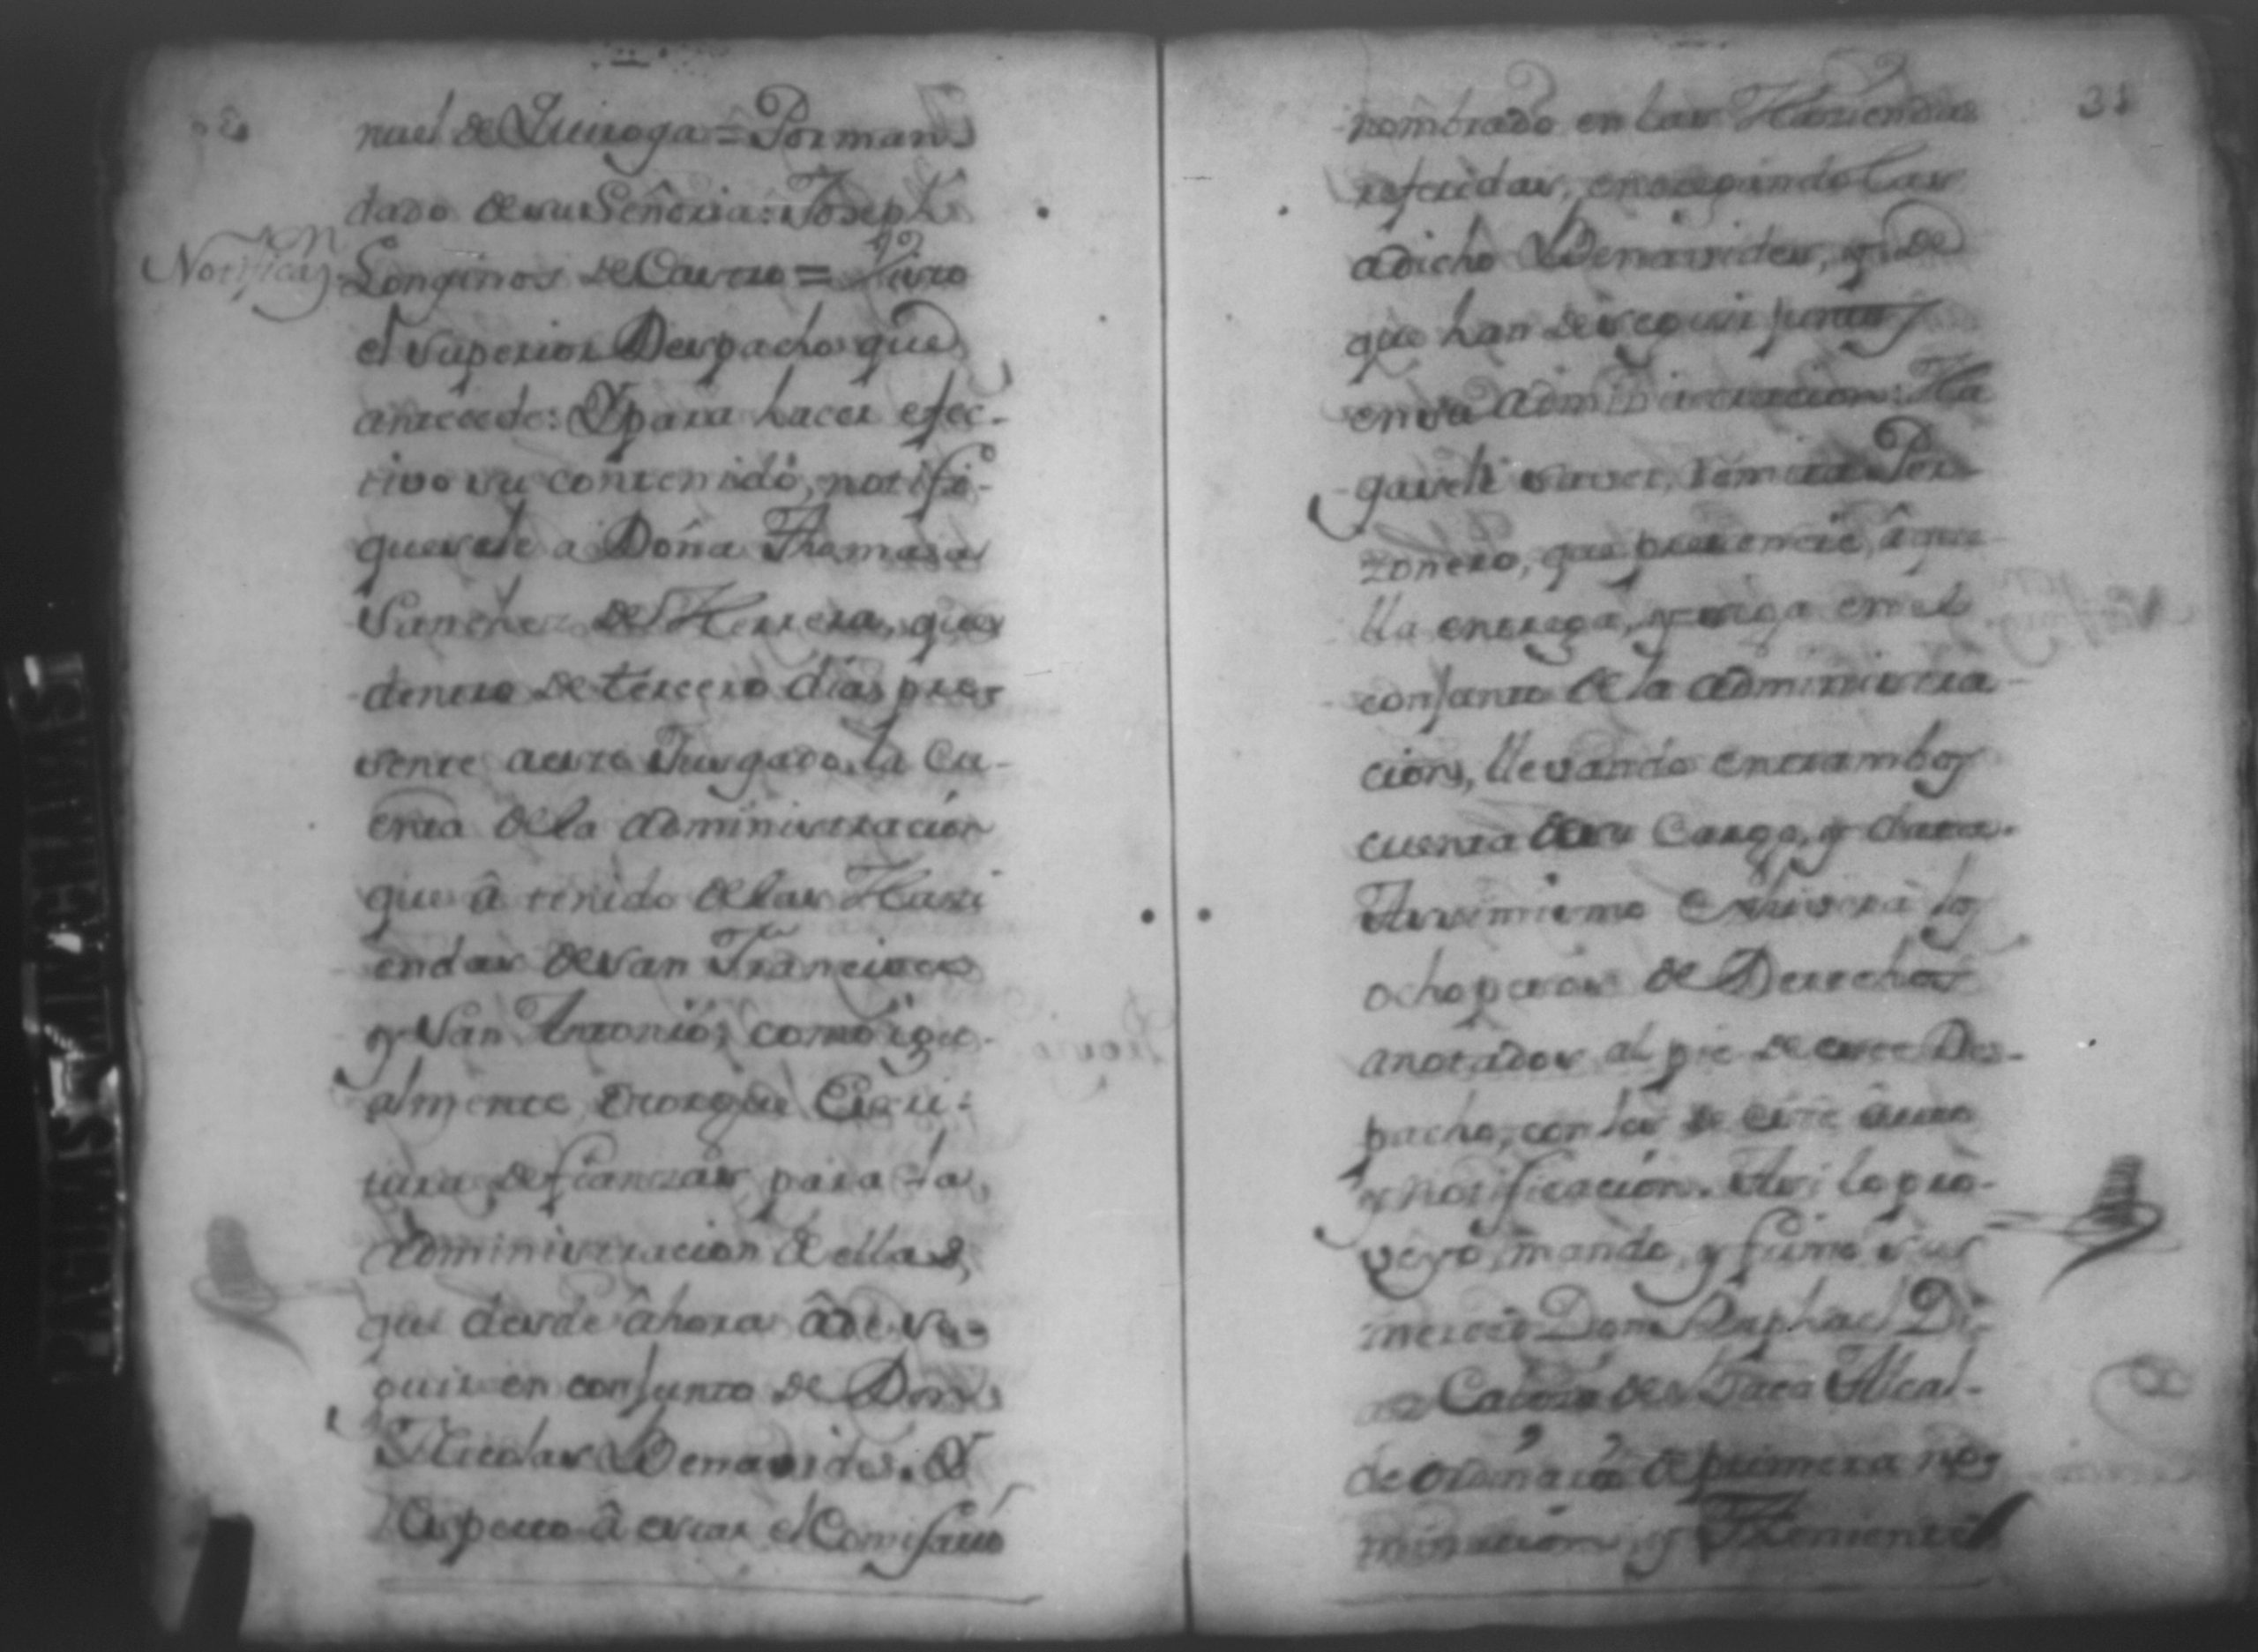 nuel de Quiroga = Por man-
dado de su Señoria: Joseph
Notificaz.on
Longinos de Castro = Visto
el Superior Despacho que
antecede: Y para hacer efec-
tivo su contenido, notifi-
quesele a Doña Thomasa
Sanchez de Herrera, que
dentro de tercero dia, pre-
sente a este Jusgado, la Cu-
enta de la administración
que â tenido de las Hazi
endas de San Francisco
y San Antonio, como igu-
almente otorgue Escri-
tura de fianzas, para la
Administracion de ellas,
que desde âhora âde se-
guir en conjunto de Don
Nicolas Benavides. Y
Respecto â estar el Comisario
31
nombrado en las Haziendas
referidas, entregando las
a dicho Benavides, y de
que han de seguir juntos
en su administracion: Ha
gasele saver, remita Per-
zonero, que presencie, âque-
lla entrega, y siga en el
conjunto de la administra-
cion, llevando entrambos
cuenta de su Cargo, y data.
Assimismo Exhivirá los
ocho pesos de Derechos
anotados al pie de este Des-
pacho, con los de este âuto
y notificacion. Assi lo pro-
veyó, mandó, y firmó su
merced Don Raphael Di-
az Alcal-
de ordinario de primera no-
minacion, y Theniente